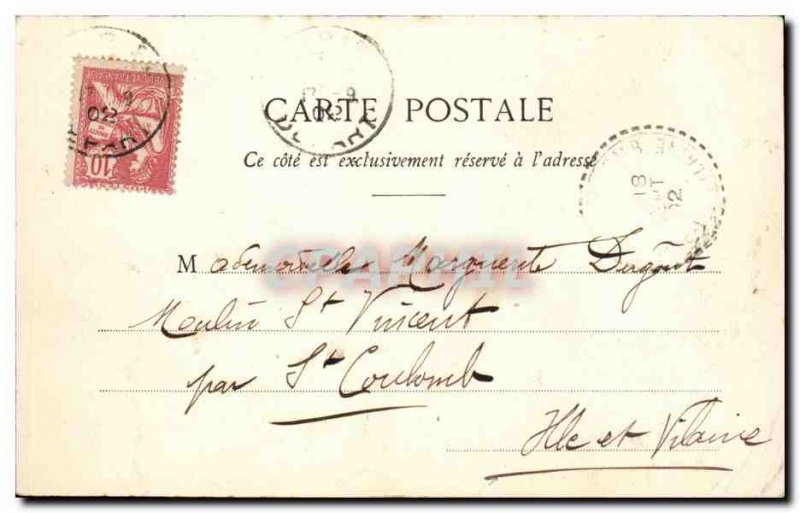 CARTE POSTALE
Ce côté est exclusivement réservé à l'adresse
Mademoiselle Marguerite
Moulin St Vincent
par St Coulomb
Ille et Vilaine
10
02
18
02